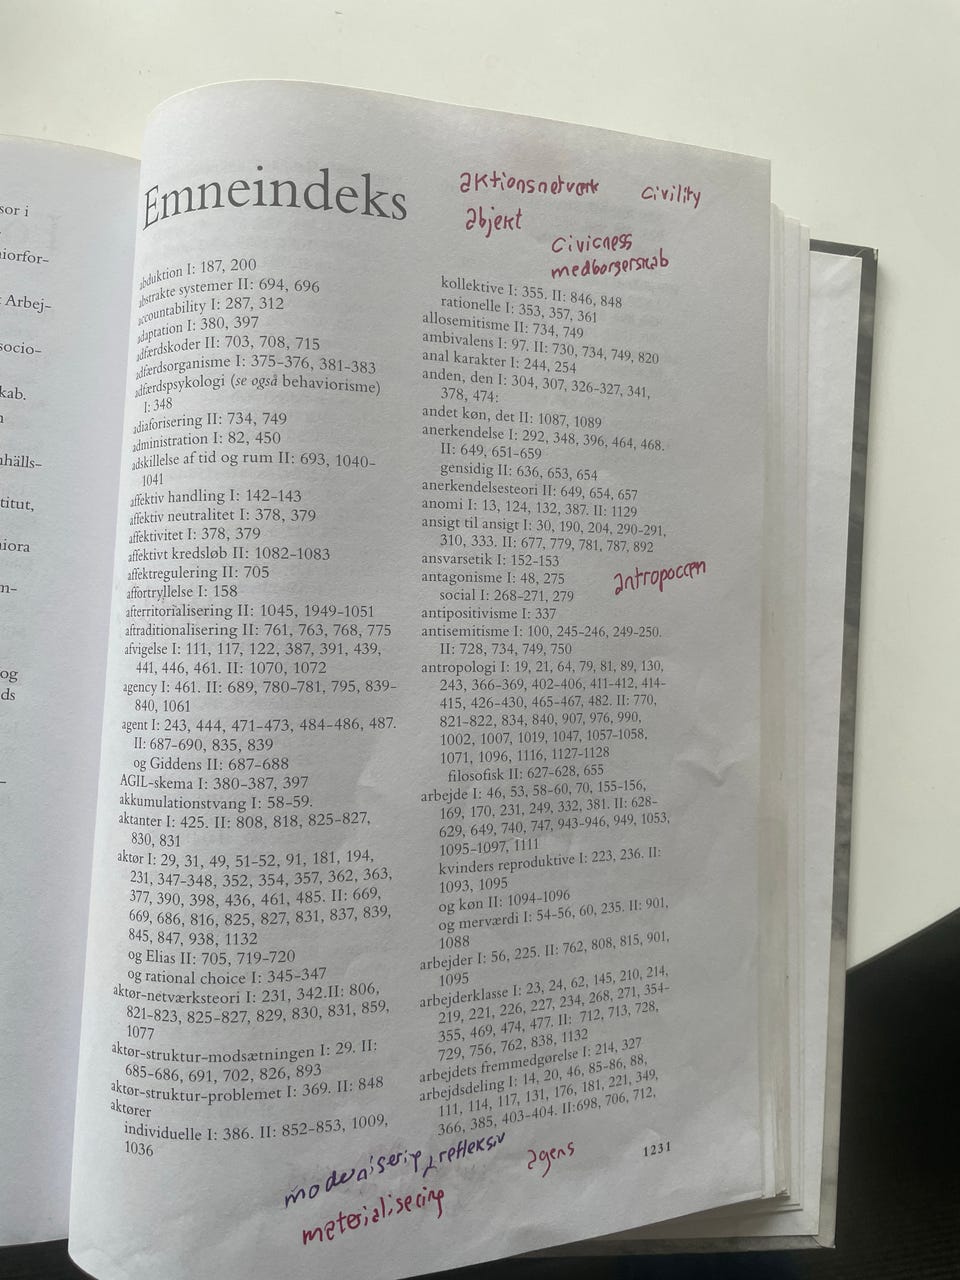 sor i
iorfor-
Arbej-
socio-
kab.
nhälls-
titut,
iora
m-
og
ds
Emneindeks
aktionsnetværk
civility
abjekt
civicness
medborgerskab
abduktion I: 187, 200
abstrakte systemer II: 694, 696
accountability I: 287, 312
adaptation I: 380, 397
adfærdskoder II: 703, 708, 715
adfærdsorganisme I: 375–376, 381–383
adfærdspsykologi (se også behaviorisme)
I: 348
adiaforisering II: 734, 749
administration I: 82, 450
adskillelse af tid og rum II: 693, 1040–
1041
affektiv handling I: 142–143
affektiv neutralitet I: 378, 379
affektivitet I: 378, 379
affektivt kredsløb II: 1082–1083
affektregulering II: 705
affortryllelse I: 158
afterritorialisering II: 1045, 1949–1051
aftraditionalisering II: 761, 763, 768, 775
afvigelse I: 111, 117, 122, 387, 391, 439,
441, 446, 461. II: 1070, 1072
agency I: 461. II: 689, 780–781, 795, 839–
840, 1061
agent I: 243, 444, 471–473, 484–486, 487.
II: 687–690, 835, 839
og Giddens II: 687–688
AGIL-skema I: 380–387, 397
akkumulationstvang I: 58–59.
aktanter I: 425. II: 808, 818, 825–827,
830, 831
aktør I: 29, 31, 49, 51–52, 91, 181, 194,
231, 347–348, 352, 354, 357, 362, 363,
377, 390, 398, 436, 461, 485. II: 669,
669, 686, 816, 825, 827, 831, 837, 839,
845, 847, 938, 1132
og Elias II: 705, 719–720
og rational choice I: 345–347
aktør-netværksteori I: 231, 342.II: 806,
821–823, 825–827, 829, 830, 831, 859,
1077
aktør-struktur-modsætningen I: 29. II:
685–686, 691, 702, 826, 893
aktør-struktur-problemet I: 369. II: 848
aktører
individuelle I: 386. II: 852–853, 1009,
1036
kollektive I: 355. II: 846, 848
rationelle I: 353, 357, 361
allosemitisme II: 734, 749
ambivalens I: 97. II: 730, 734, 749, 820
anal karakter I: 244, 254
anden, den I: 304, 307, 326–327, 341,
378, 474:
andet køn, det II: 1087, 1089
anerkendelse I: 292, 348, 396, 464, 468.
II: 649, 651–659
gensidig II: 636, 653, 654
anerkendelsesteori II: 649, 654, 657
anomi I: 13, 124, 132, 387. II: 1129
ansigt til ansigt I: 30, 190, 204, 290–291,
310, 333. II: 677, 779, 781, 787, 892
ansvarsetik I: 152–153
antagonisme I: 48, 275
social I: 268–271, 279
antropocæn
antipositivisme I: 337
antisemitisme I: 100, 245–246, 249–250.
II: 728, 734, 749, 750
antropologi I: 19, 21, 64, 79, 81, 89, 130,
243, 366–369, 402–406, 411–412, 414–
415, 426–430, 465–467, 482. II: 770,
821–822, 834, 840, 907, 976, 990,
1002, 1007, 1019, 1047, 1057–1058,
1071, 1096, 1116, 1127–1128
filosofisk II: 627–628, 655
arbejde I: 46, 53, 58–60, 70, 155–156,
169, 170, 231, 249, 332, 381. II: 628–
629, 649, 740, 747, 943–946, 949, 1053,
1095–1097, 1111
kvinders reproduktive I: 223, 236. II:
1093, 1095
og køn II: 1094–1096
og merværdi I: 54–56, 60, 235. II: 901,
1088
arbejder I: 56, 225. II: 762, 808, 815, 901,
1095
arbejderklasse I: 23, 24, 62, 145, 210, 214,
219, 221, 226, 227, 234, 268, 271, 354–
355, 469, 474, 477. II: 712, 713, 728,
729, 756, 762, 838, 1132
arbejdets fremmedgørelse I: 214, 327
arbejdsdeling I: 14, 20, 46, 85–86, 88,
111, 114, 117, 131, 176, 181, 221, 349,
366, 385, 403–404. II:698, 706, 712,
modernisering, refleksiv
agens
1231
materialisering